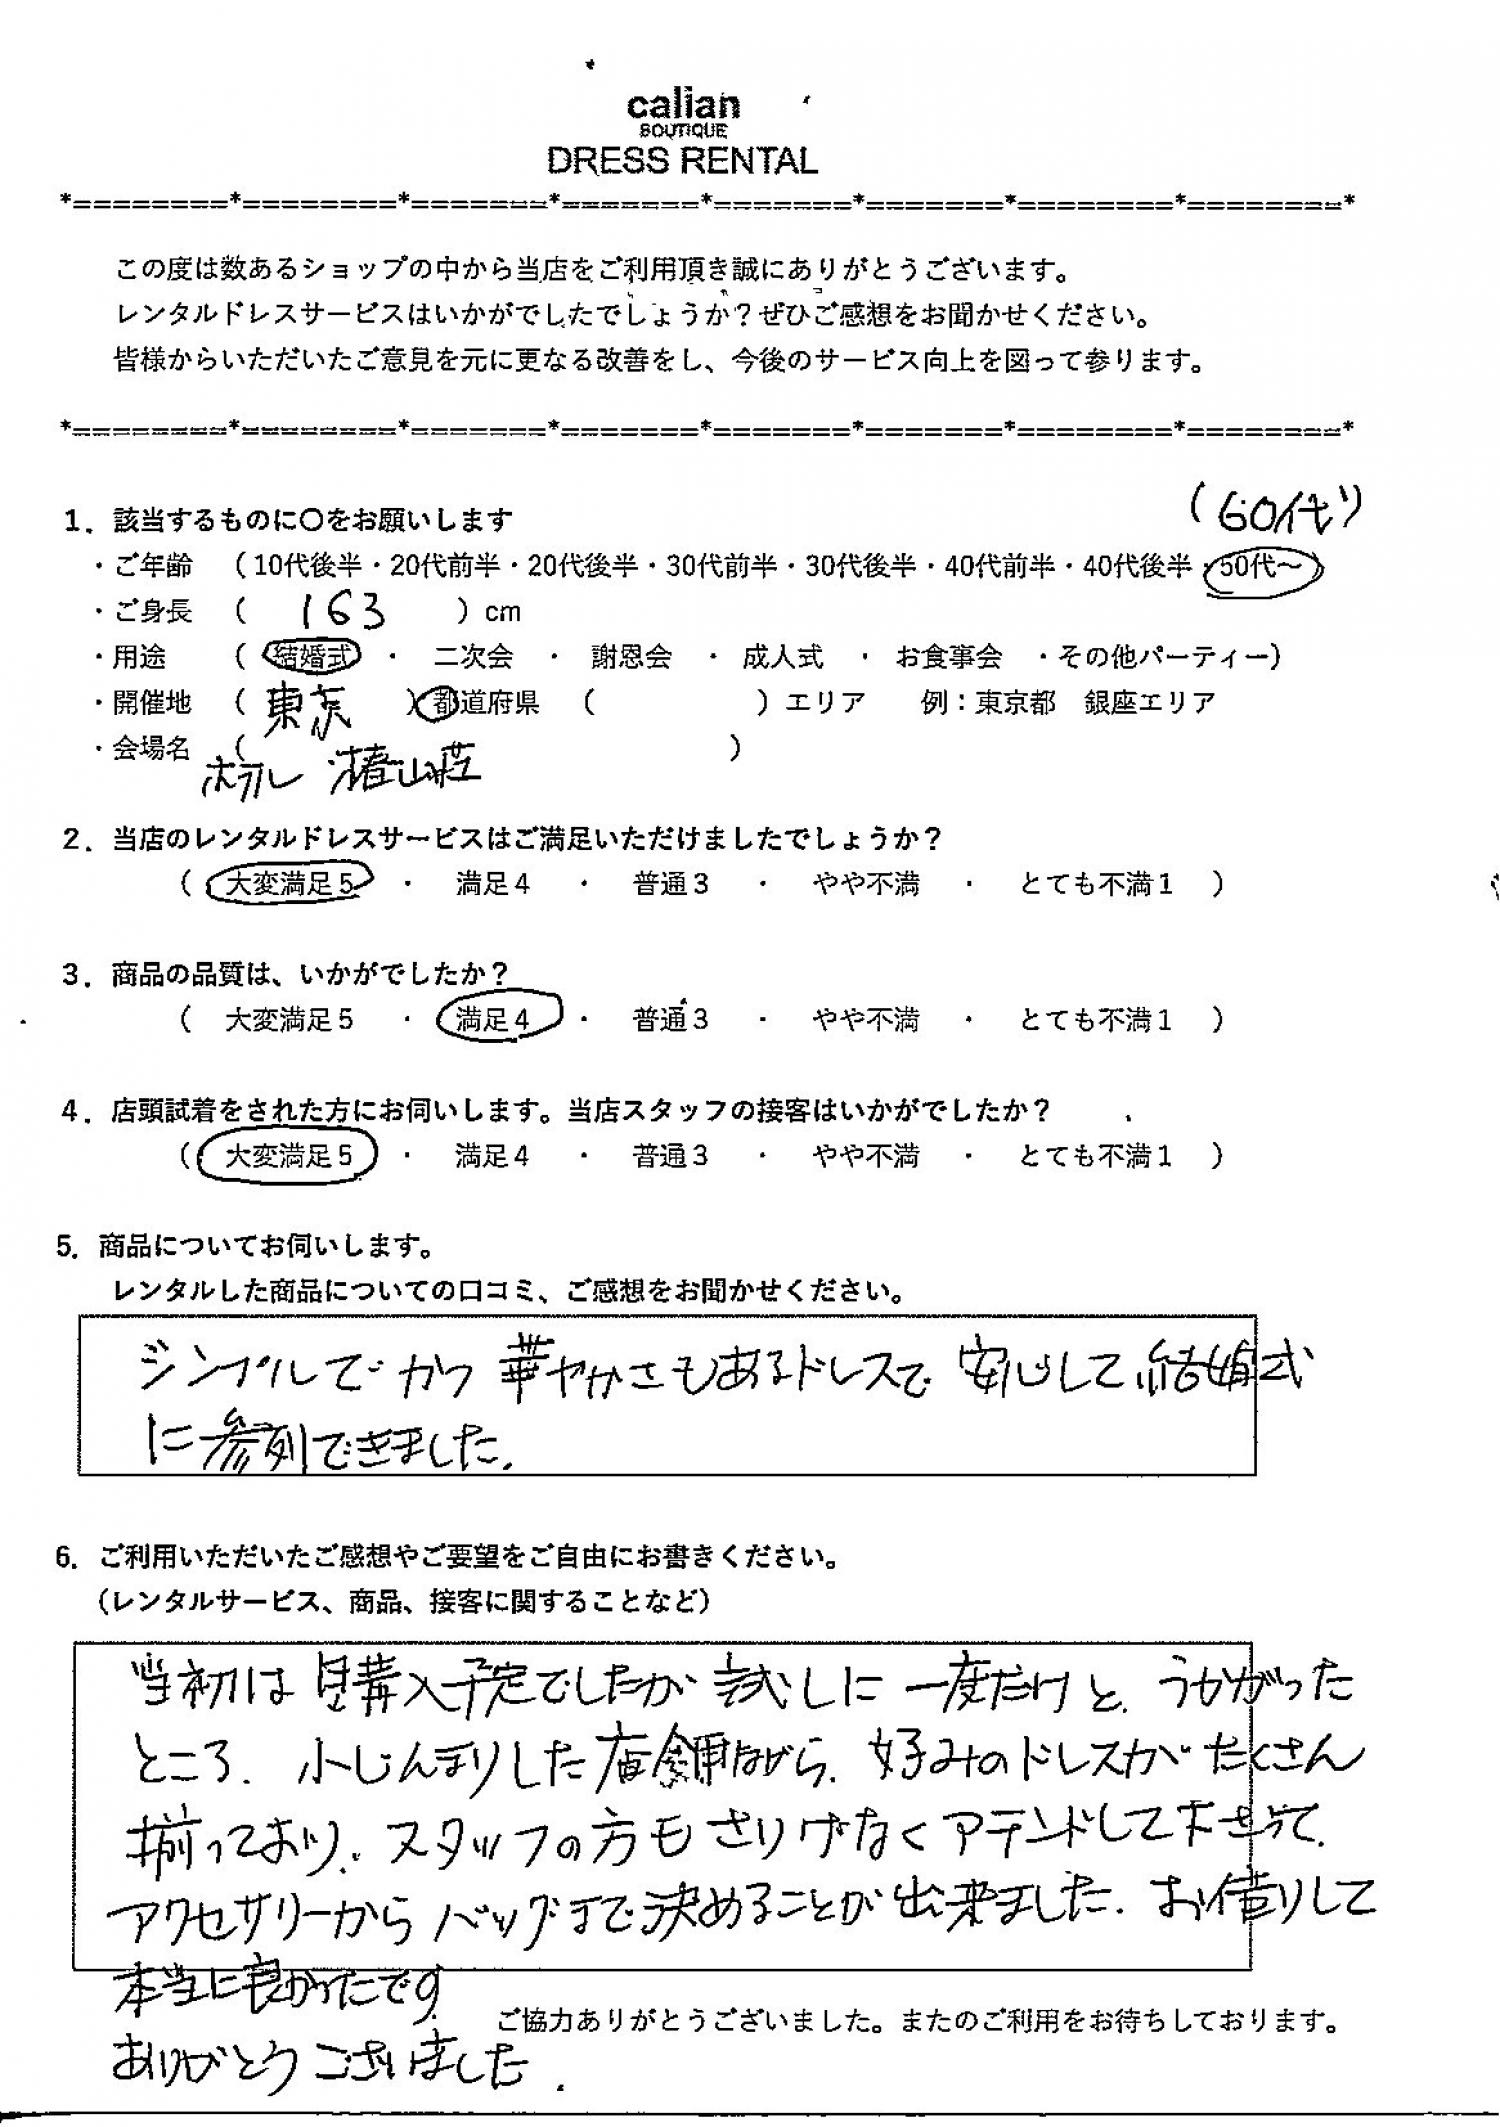 calian
BOUTIQUE
DRESS RENTAL
*========*========*=======*=======*=======*=======*========*========*
この度は数あるショップの中から当店をご利用頂き誠にありがとうございます。
レンタルドレスサービスはいかがでしたでしょうか？ぜひご感想をお聞かせください。
皆様からいただいたご意見を元に更なる改善をし、今後のサービス向上を図って参ります。
*========*========*=======*=======*=======*=======*========*========*
(60代)
1．該当するものに〇をお願いします
・ご年齢 （10代後半・20代前半・20代後半・30代前半・30代後半・40代前半・40代後半・50代～）
・ご身長 （ 163 ）cm
・用途 （ 結婚式 ・ 二次会 ・ 謝恩会 ・ 成人式 ・ お食事会 ・その他パーティー）
・開催地 （ 東京 ）都道府県 （ ）エリア 例：東京都 銀座エリア
・会場名 （ ）
ホテル 椿山荘
2．当店のレンタルドレスサービスはご満足いただけましたでしょうか？
（ 大変満足5 ・ 満足4 ・ 普通3 ・ やや不満 ・ とても不満1 ）
3．商品の品質は、いかがでしたか？
（ 大変満足5 ・ 満足4 ・ 普通3 ・ やや不満 ・ とても不満1 ）
4．店頭試着をされた方にお伺いします。当店スタッフの接客はいかがでしたか？
（ 大変満足5 ・ 満足4 ・ 普通3 ・ やや不満 ・ とても不満1 ）
5．商品についてお伺いします。
レンタルした商品についての口コミ、ご感想をお聞かせください。
シンプルで かつ 華やかさもあるドレスで 安心して 結婚式
に参列できました.
6．ご利用いただいたご感想やご要望をご自由にお書きください。
（レンタルサービス、商品、接客に関することなど）
当初は 購入予定でしたが 試しに 一度だけと、うかがった
ところ、小じんまりした店舗ながら、好みのドレスが たくさん
揃っており、スタッフの方も さりげなく アテンドして下さって、
アクセサリーから バッグまで決めることが出来ました. お借りして
本当に良かったです
ご協力ありがとうございました。またのご利用をお待ちしております。
ありがとう ございました.